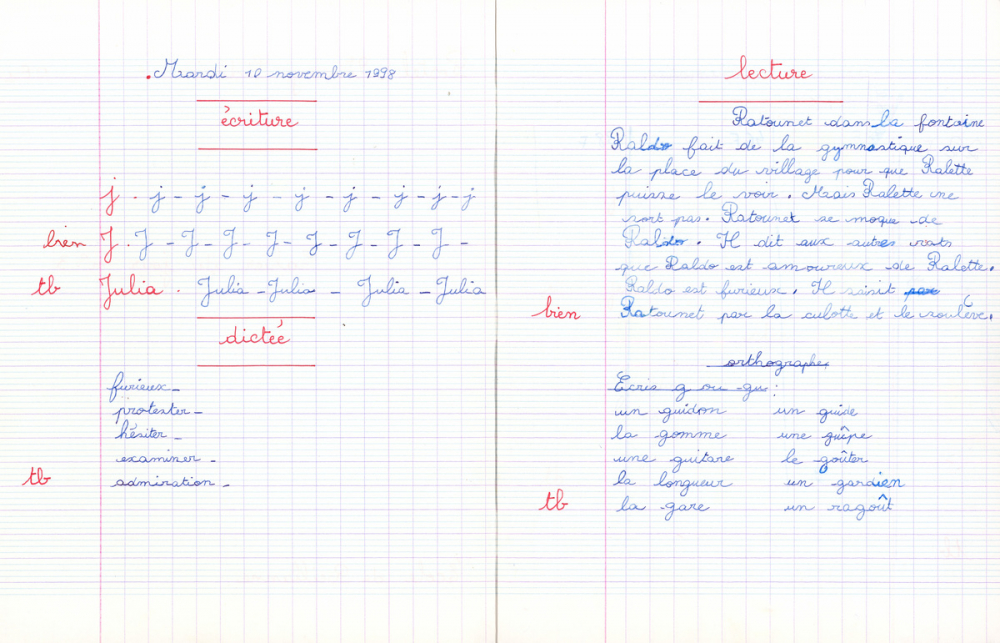 .Mardi 10 novembre 1998
écriture
j . j - j - j - j - j - j - j - j - j
bien J . J - J - J - J - J - J - J - J -
tb Julia . Julia - Julia - Julia - Julia
dictée
furieux -
protester -
hésiter -
examiner -
tb admiration -
lecture
Ratounet dans la fontaine
Raldo fait de la gymnastique sur
la place du village pour que Ralette
puisse le voir. Mais Ralette ne
sort pas. Ratounet se moque de
Raldo. Il dit aux autres rats
que Raldo est amoureux de Ralette.
Raldo est furieux. Il saisit par
bien Ratounet par la culotte et le soulève.
orthographe
Ecris g ou gu :
un guidon un guide
la gomme une guêpe
une guitare le goûter
la longueur un gardien
tb la gare un ragoût